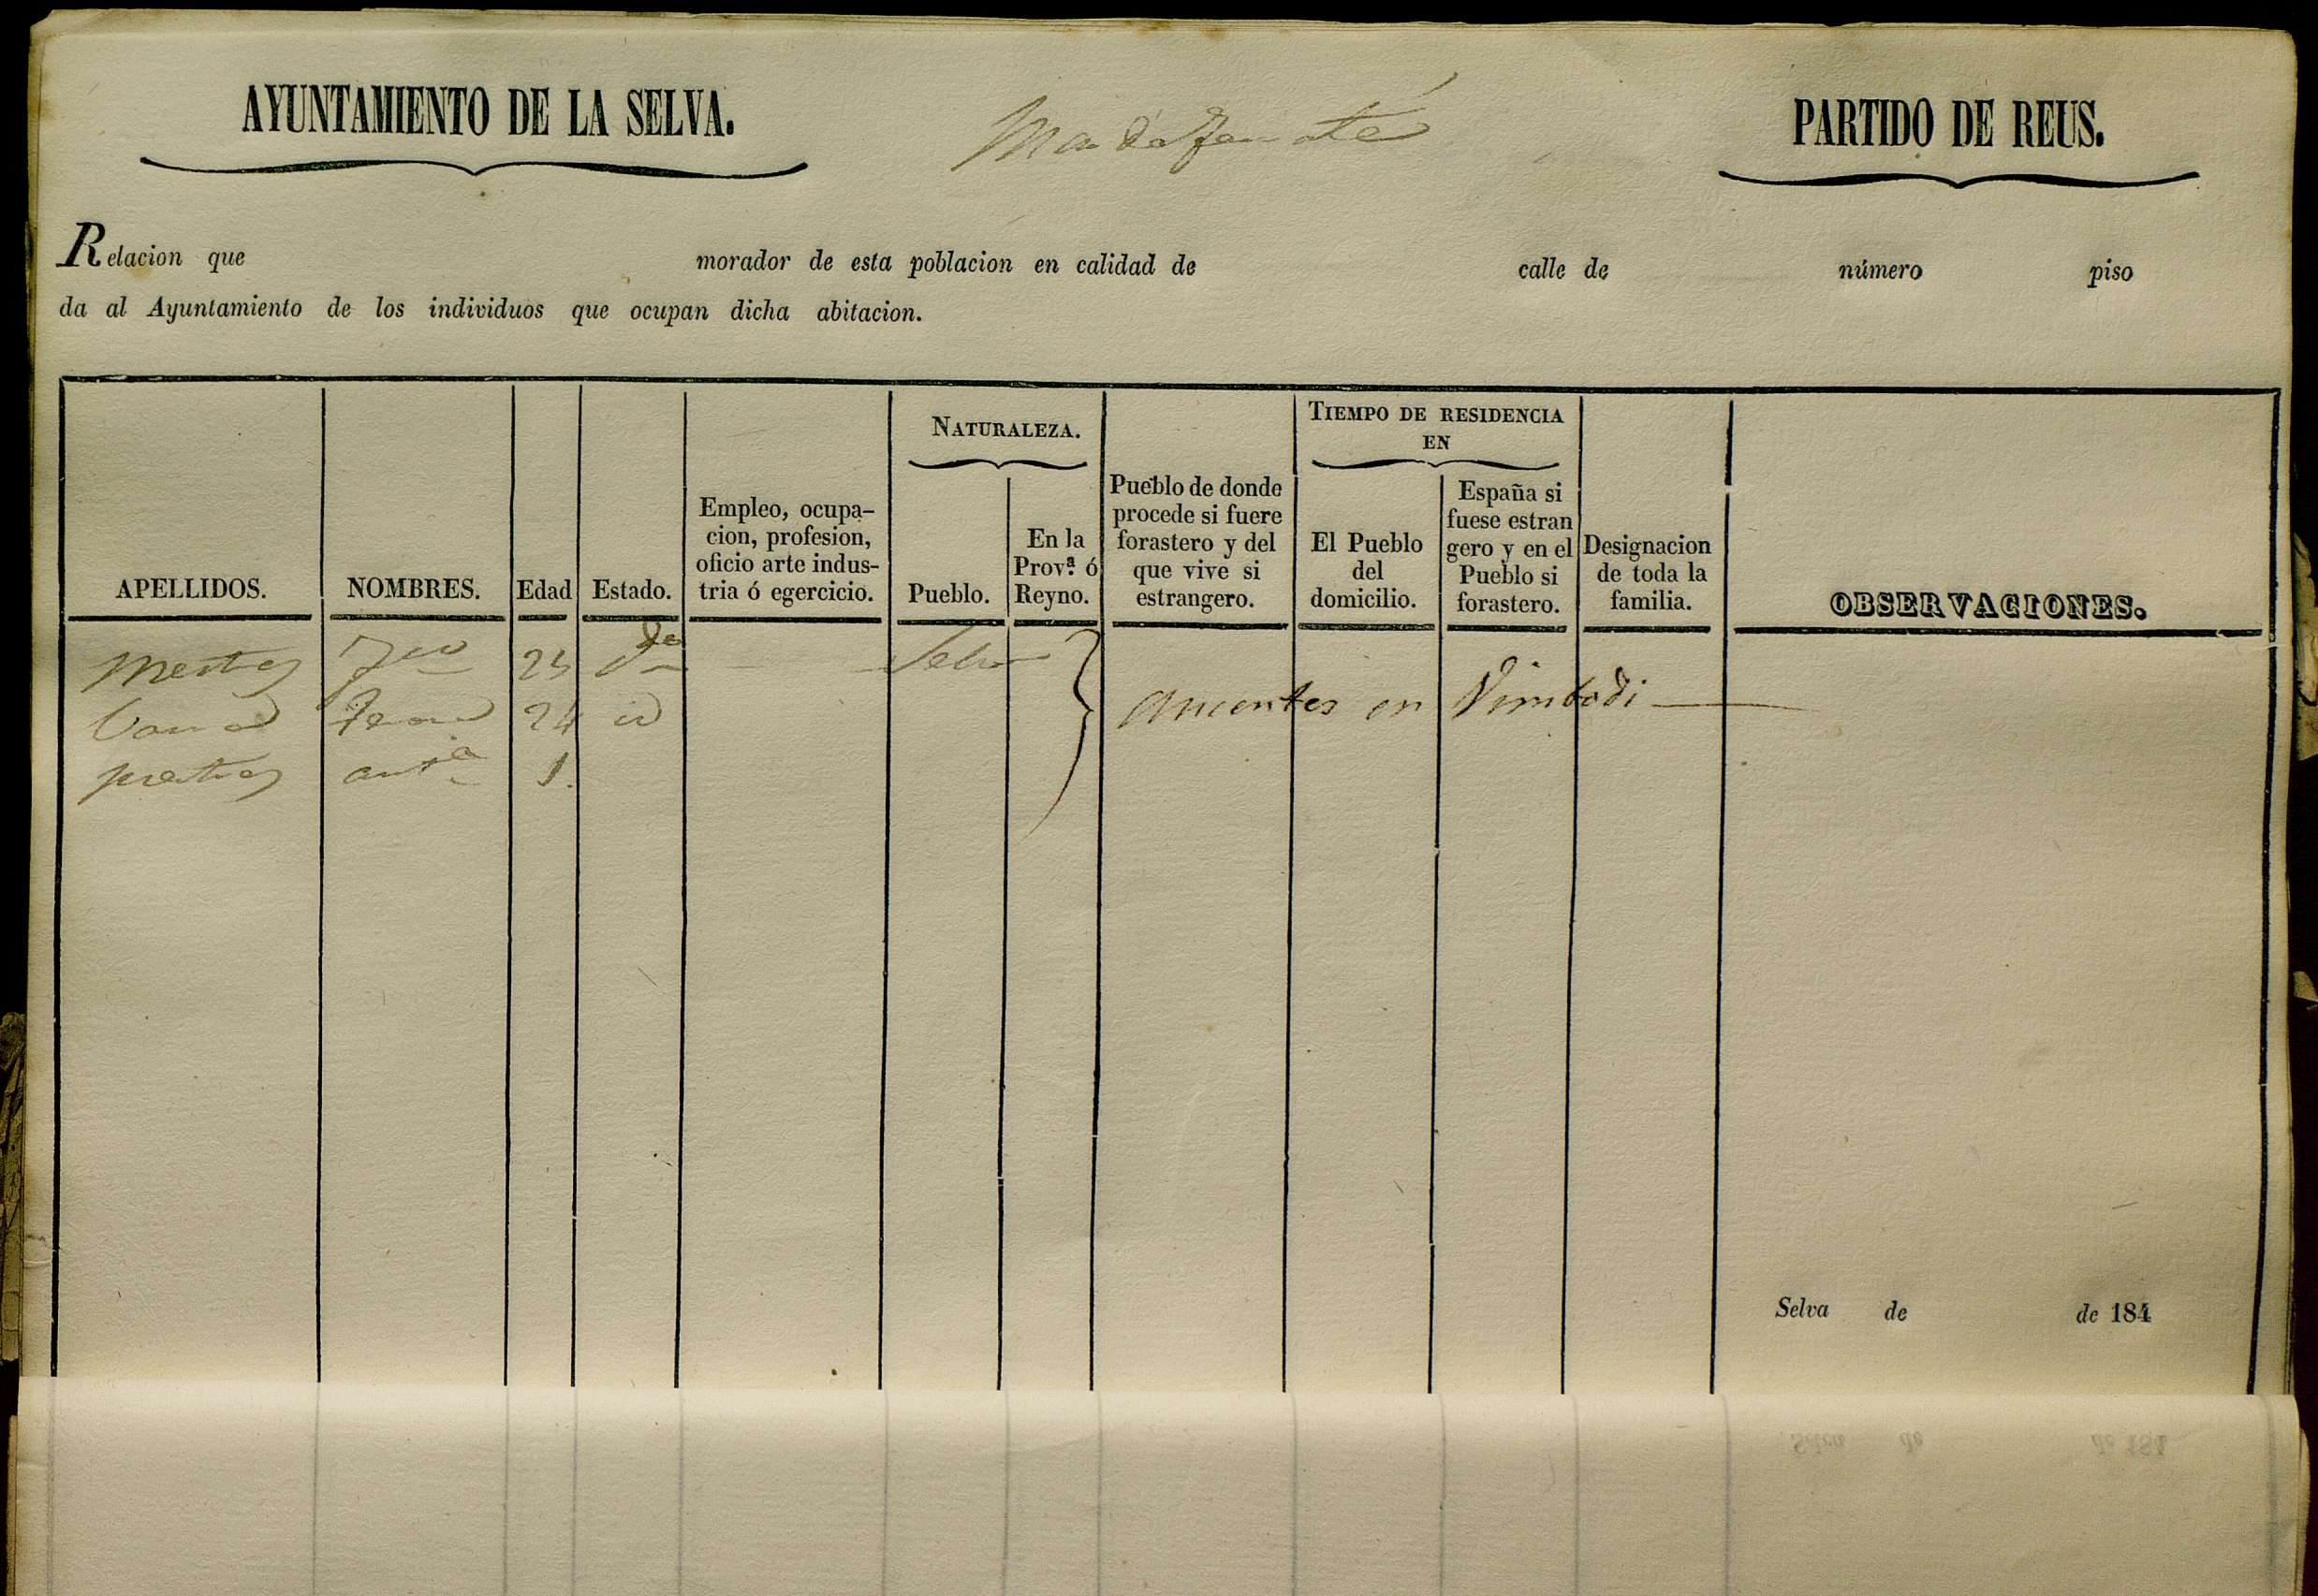 AYUNTAMIENTO DE LA SELVA.
PARTIDO DE REUS.
Relacion que morador de esta poblacion en calidad de calle de número piso
da al Ayuntamiento de los individuos que ocupan dicha abitacion.
APELLIDOS.
NOMBRES.
Edad
Estado.
Empleo, ocupa-
cion, profesion,
oficio arte indus-
tria ó egercicio.
NATURALEZA.
Pueblo.
En la
Prov.ª ó
Reyno.
Pueblo de donde
procede si fuere
forastero y del
que vive si
estrangero.
TIEMPO DE RESIDENCIA
EN
El Pueblo
del
domicilio.
España si
fuese estran
gero y en el
Pueblo si
forastero.
Designacion
de toda la
familia.
OBSERVACIONES.
Selva
24 id
ant.a 1.
Ausentes en Vimbodi
Selva de de 184